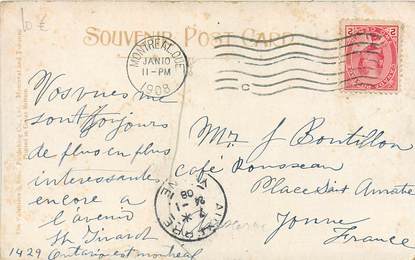 10 €
SOUVENIR POST CARD
MONTREAL, QUE.
JAN 10
11-PM
1908
C
2 2
Vos vues me
sont toujours
de plus en plus
interessantes
encore a
l'avenir
St Girard
1429 Ontario est Montreal
Mr J Boutillon
café Rousseau
Place Saint Amatre
Yonne
France
AUXERRE
YONNE
24
08